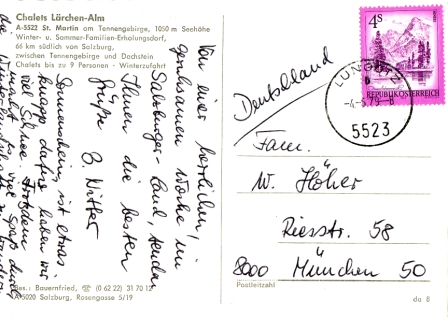 Chalets Lärchen-Alm
A-5522 St. Martin am Tennengebirge, 1050 m Seehöhe
Winter- u. Sommer-Familien-Erholungsdorf,
66 km südlich von Salzburg,
zwischen Tennengebirge und Dachstein
Chalets bis zu 9 Personen - Winterzufahrt
Von einer herrlichen,
erholsamen Woche im
Salzburger-Land, senden
Ihnen die besten
Grüße
Sonnenschein ist etwas
knapp dafür haben wir
viel Schnee. Trotzdem
macht es viel Spaß durch
die
zu wandern
Bes.: Bauernfried, ☏ (0 62 22) 31 70 12
A-5020 Salzburg, Rosengasse 5/19
4S
REPUBLIK ÖSTERREICH
LUNGÖTZ
b
-4.-5.79-8
5523
Deutschland
Fam.
W. Höher
Riesstr. 58
8000 München 50
Postleitzahl
du 8